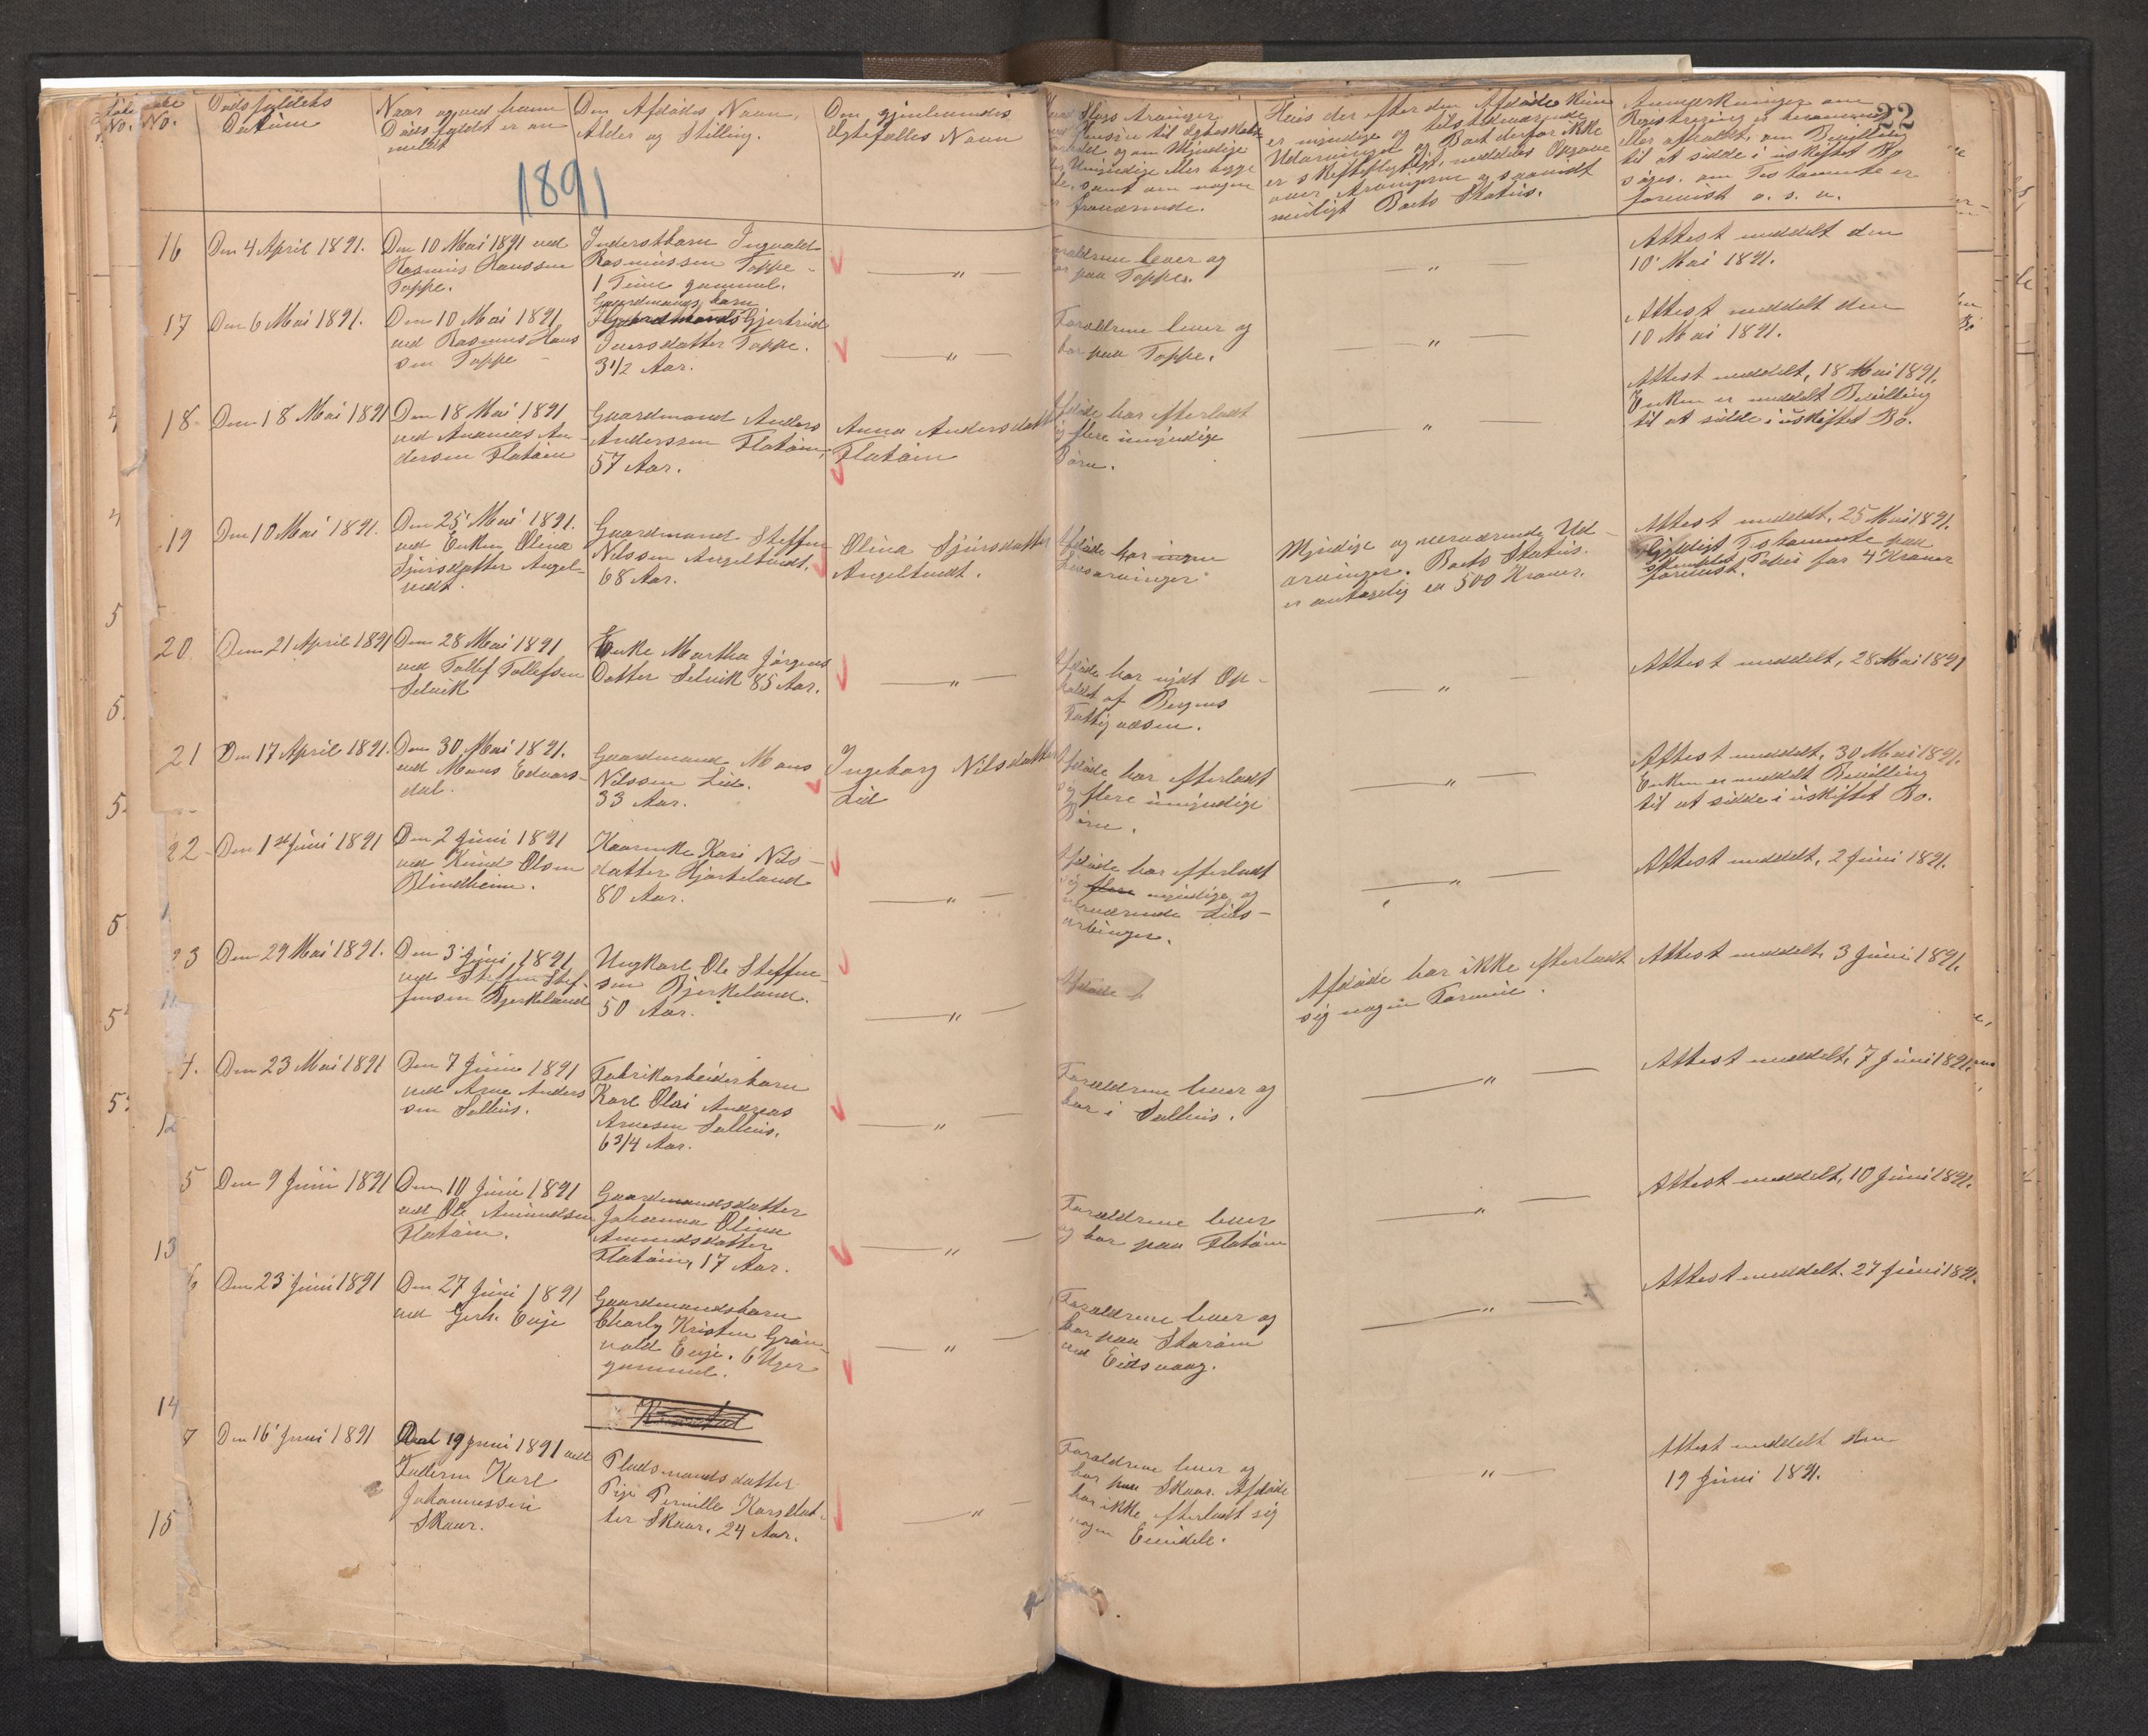 No.
Dødsfaldets
Datum
Naar og ved hvem
Dødsfaldet er an
meldt
Den Afdødes Navn,
Alder og Stilling.
Den gjenlevendes
Ægtefælles Navn
Slags Arvinger
til Ægteskabs
og om Myndige
Umyndige eller begge
samt om nogen
fraværende.
Hvis der efter den Afdøde kun
er myndige og tilstedeværende
Udarvinger og Boet derfor ikke
er skiftepligtigt, meddeles Opgave
over Arvingerne og saavidt
muligt Boets Status.
Anmærkninger om
Registrering er berammet
eller afholdt, om Bevilling
til at sidde i uskiftet Bo
søges. om Testamente er
forevist o. s. v.
22
1891
16
Den 4 April 1891.
Den 10 Mai 1891 ved
Rasmus Hanssen
Toppe.
Inderstbarn Ingvald
Rasmussen Toppe
1 Time gammel.
"
Forældrene lever og
bor paa Toppe.
"
Attest meddelt den
10 Mai 1891.
17
Den 6 Mai 1891.
Den 10 Mai 1891
ved Rasmus Hans
sen Toppe
Gaardmands barn
Gjertrud
Iversdatter Toppe.
3 1/2 Aar.
"
Forældrene lever og
bor paa Toppe.
"
Attest meddelt den
10 Mai 1891.
18
Den 18 Mai 1891
Den 18 Mai 1891
ved Ananias An
dersen Flatøen
Gaardmand Anders
Anderssen Flatøen,
57 Aar.
Anna Andersdatter
Flatøen
Afdøde har efterladt
sig flere umyndige
Børn.
"
Attest meddelt, 18 Mai 1891.
Enken er meddelt Bevilling
til at sidde i uskiftet Bo.
19
Den 10 Mai 1891.
Den 25 Mai 1891.
ved Enken Olina
Sjursdatter Angel-
tvedt.
Gaardmand Steffen
Nilssen Angeltvedt.
68 Aar.
Olina Sjursdatter
Angeltvedt.
Afdøde har ingen
Livsarvinger
Myndige og nærværende Ud-
arvinger. Boets Status
er antagelig ca 500 Kroner.
Attest meddelt, 25 Mai 1891.
Gjyldigt Testamente paa
stemplet Papir for 4 Kroner
forevist.
20
Den 21 April 1891
Den 28 Mai 1891
ved Tollef Tollefsen
Selvik
Enke Martha Jørgens
Datter Selvik 85 Aar.
"
Afdøde har nydt Op-
holdet af Bergens
Fattigvæsen.
"
Attest meddelt, 28 Mai 1891
21
Den 17 April 1891.
Den 30 Mai 1891.
ved Mons Edvars-
dal.
Gaardmand Mons
Nilssen Lid.
33 Aar.
Ingeborg Nilsdatter
Lid
Afdøde har efterladt
sig flere umyndige
Børn.
"
Attest meddelt, 30 Mai 1891.
Enken er meddelt Bevilling
til at sidde i uskiftet Bo.
22
Den 1ste Juni 1891
Den 2 Juni 1891
ved Knud Olsen
Blindheim.
Kaarenke Kari Nils-
datter Hjorteland
80 Aar.
"
Afdøde har efterladt
sig flere myndige og
nærværende Livs-
arvinger.
"
Attest meddelt, 2 Juni 1891.
23
Den 29 Mai 1891.
Den 3 Juni 1891
ved Steffen Stef-
fensen Bjerkeland
Ungkarl Ole Steffen-
sen Bjerkeland.
50 Aar.
"
Afdøde
Afdøde har ikke efterladt
sig nogen Formue.
Attest meddelt, 3 Juni 1891.
4.
Den 23 Mai 1891
Den 7 Juni 1891
ved Arne Anders
sen Salhus.
Fabrikarbeiderbarn
Karl Olai Andreas
Arnesen Salhus.
6 3/4 Aar.
"
Forældrene lever og
bor i Salhus.
"
Attest meddelt, 7 Juni 1891
5
Den 9 Juni 1891
Den 10 Juni 1891
ved Ole Amundsen
Flatøen.
Gaardmandsdatter
Johanna Olina
Amundsdatter
Flatøen, 17 Aar.
"
Forældrene lever
og bor paa Flatøen
"
Attest meddelt, 10 Juni 1891.
6
Den 23 Juni 1891
Den 27 Juni 1891
ved Gerh. Evje
Gaardmandsbarn
Charly Kristen Grøn-
vold Evje. 6 Uger
gammel.
"
Forældrene lever og
bor paa Storøen
ved Eidsvaag.
"
Attest meddelt. 27 Juni 1891.
7
Den 16 Juni 1891
Den 19 Juni 1891 ved
Faderen Karl
Johannessen
Skaar.
Pladsmandsdatter
Pige Pernille Karsdat
ter Skaar. 24 Aar.
"
Forældrene lever og
bor paa Skaar. Afdøde
har ikke efterladt sig
nogen Eiendele.
"
Attest meddelt den
19 Juni 1891.
12
13
14
15